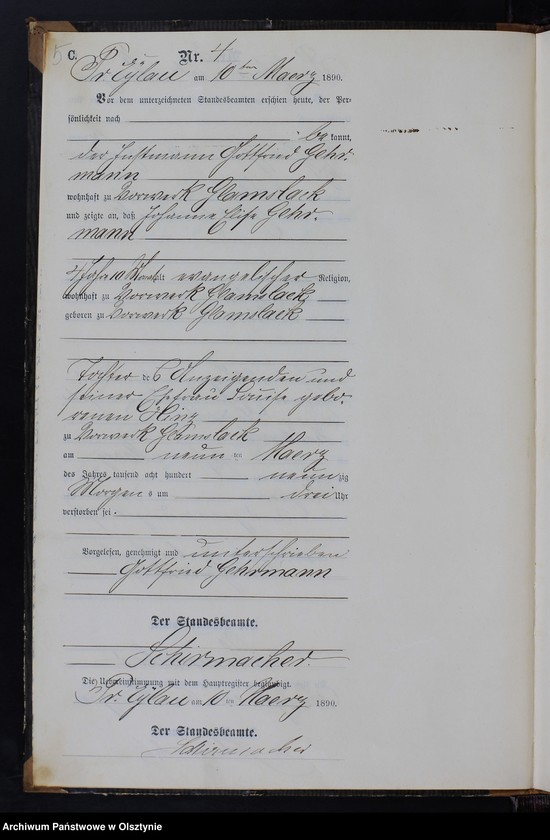 5 C. Nr. 4
Pr. Eylau am 10ten Maerz 1890.
Vor dem unterzeichneten Standesbeamten erschien heute, der Per-
sönlichkeit nach
be kannt,
der Instmann Gottfried Gehr-
mann
wohnhaft zu Vorwerk Glamslack
und zeigte an, daß Johanne Elise Gehr-
mann
alt evangelischer Religion,
wohnhaft zu Vorwerk Glamslack
geboren zu Vorwerk Glamslack
Tochter des Anzeigenden und
seiner Ehefrau Louise gebo-
renen
zu Vorwerk Glamslack
am neun ten Maerz
des Jahres tausend acht hundert neunzig
Morgens um drei Uhr
verstorben sei.
Vorgelesen, genehmigt und unterschrieben
Gottfried Gehrmann
Der Standesbeamte.
Schirmacher
Die Uebereinstimmung mit dem Hauptregister beglaubigt.
Pr. Eylau am 10 ten Maerz 1890.
Der Standesbeamte.
Schirmacher
Archiwum Państwowe w Olsztynie